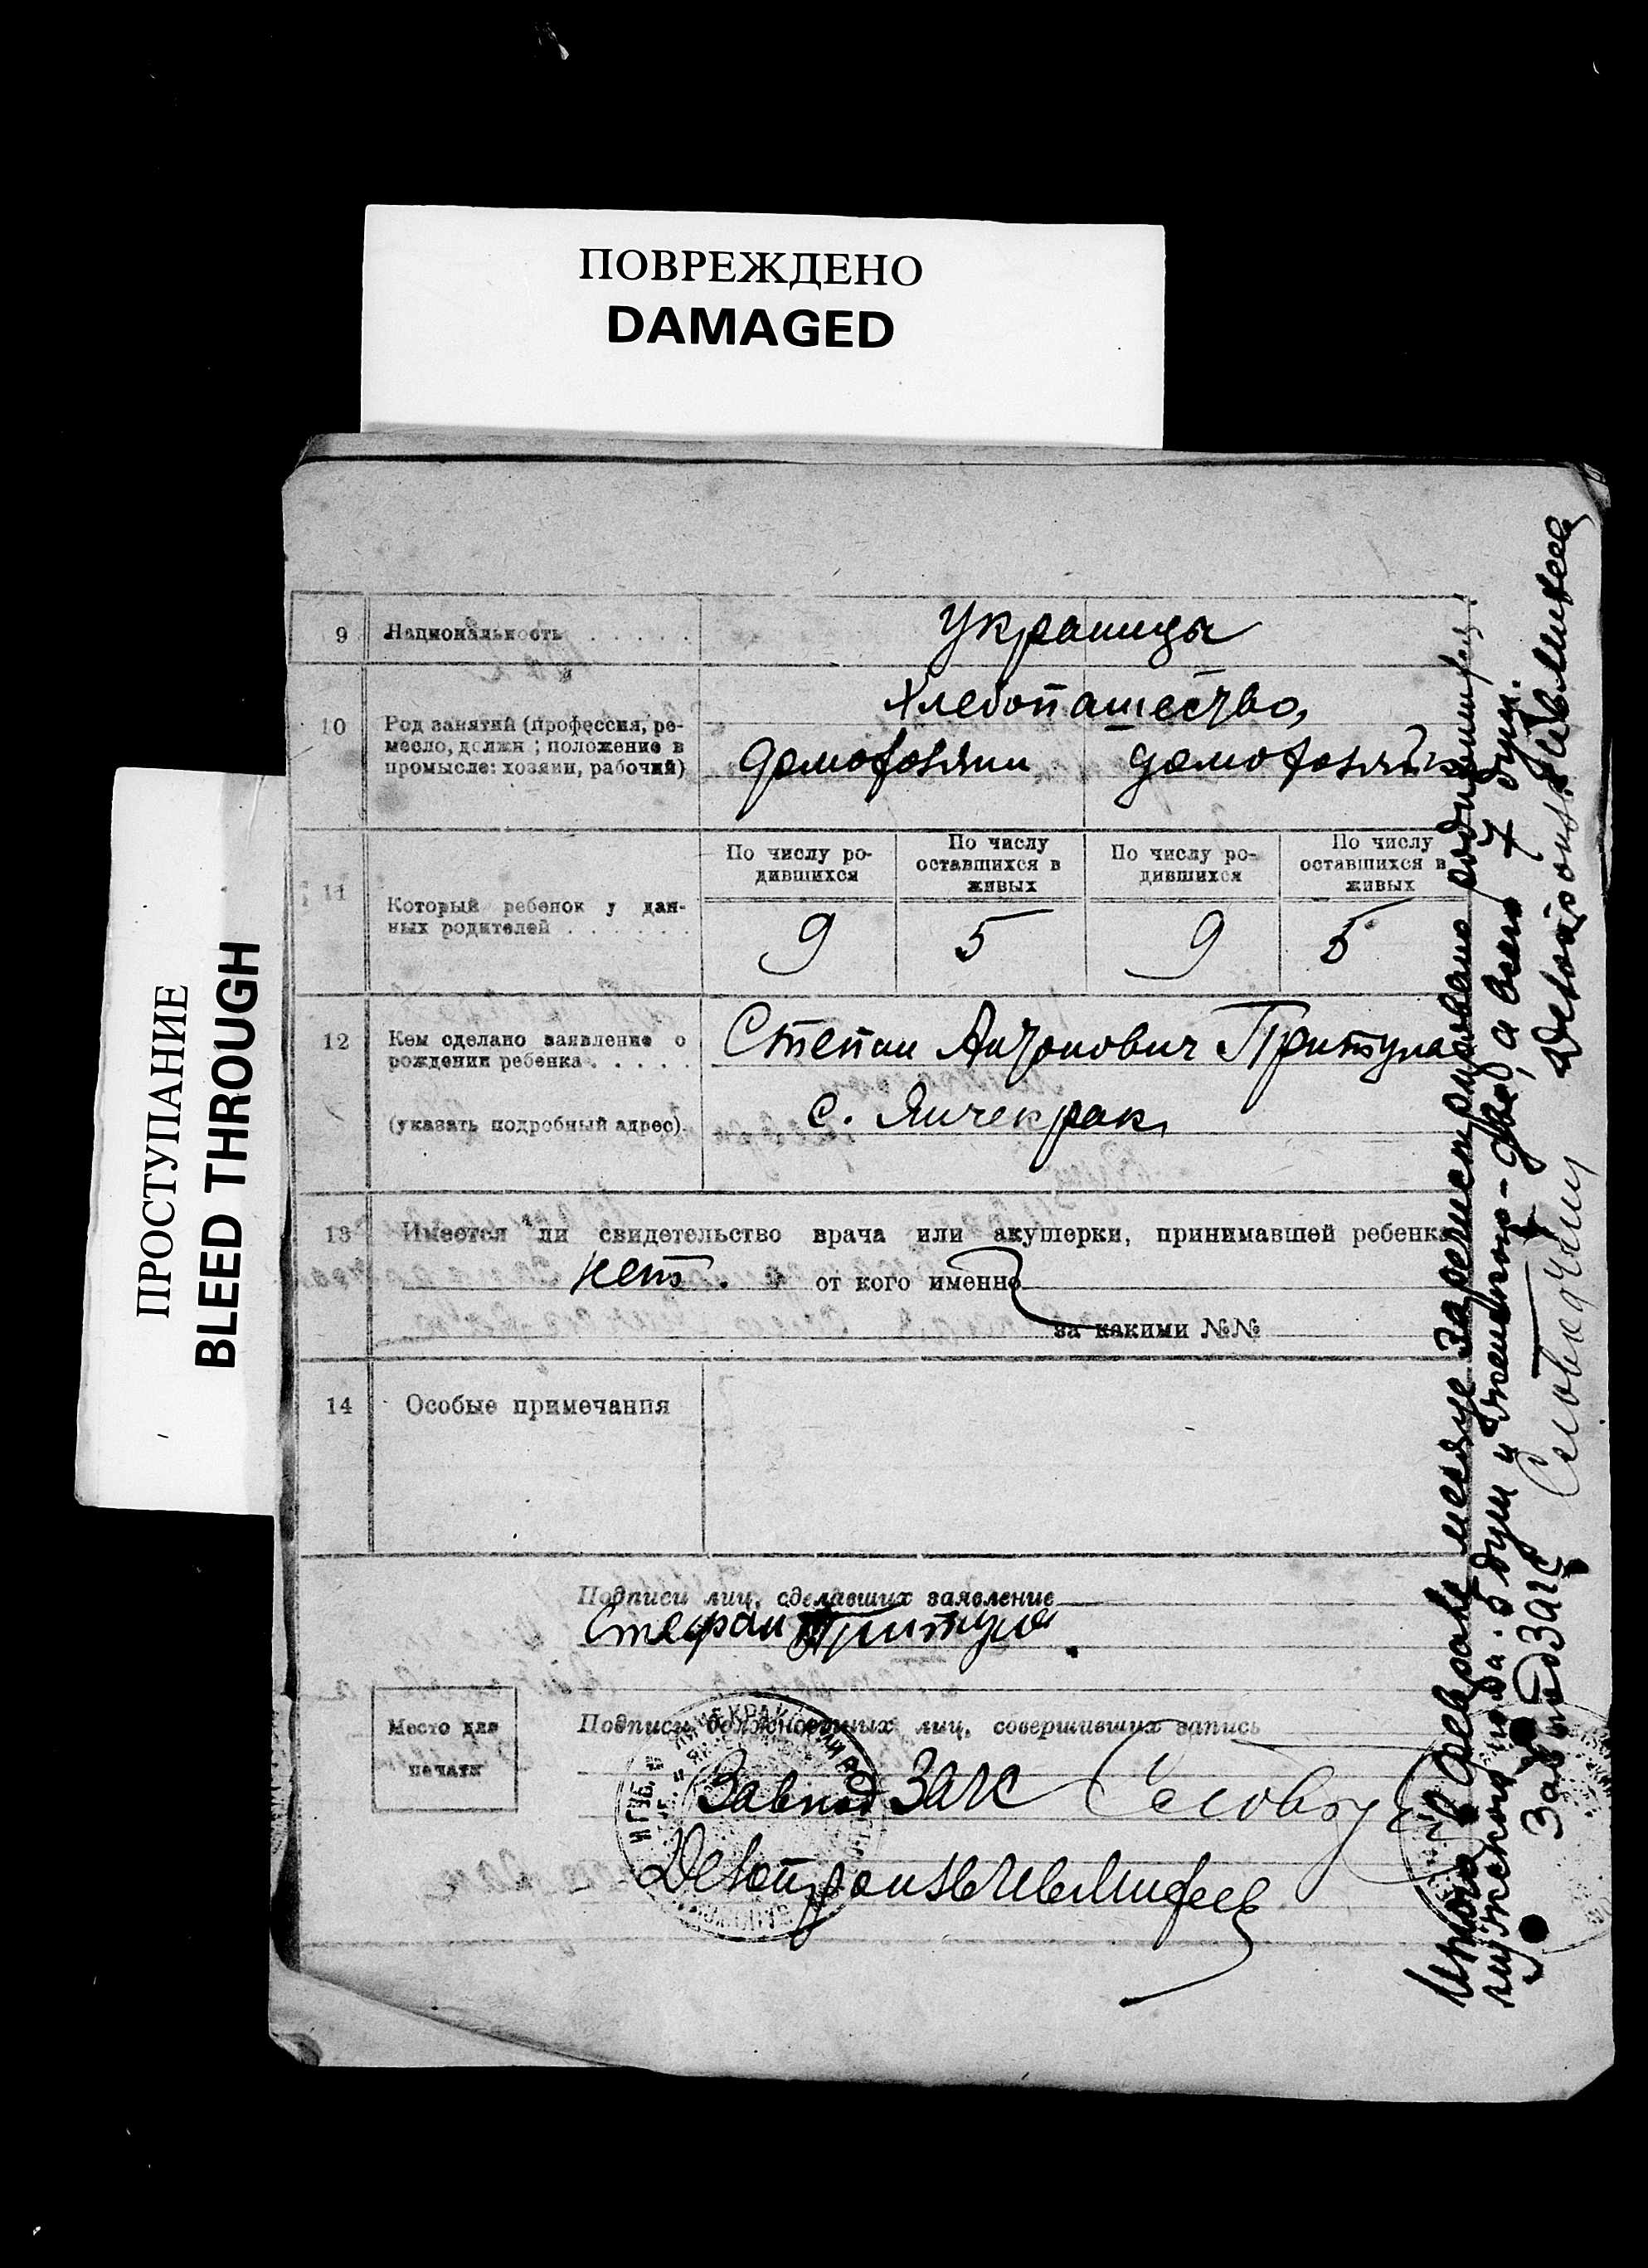 ПОВРЕЖДЕНО
DAMAGED
ПРОСТУПАНИЕ
BLEED THROUGH
9 Национальность . . . . . .
Украинцы
10 Род занятий (профессия, ре-
месло, должн ; положение в
промысле: хозяин, рабочий)
Хлебопашество,
домохозяин домохозяйк
11 Который ребенок у дан-
ных родителей . . . . . .
По числу ро-
дившихся
По числу
оставшихся в
живых
По числу ро-
дившихся
По числу
оставшихся в
живых
9 5 9 5
12 Кем сделано заявление о
рождении ребенка . . . . .
(указать подробный адрес).
Степан Антонович Притула
с. Янчекрак,
13 Имеется ли свидетельство врача или акушерки, принимавшей ребенка
нет. от кого именно
за какими №№
14 Особые примечания
Подписи лиц, сделавших заявление
Стефан Притула
Место для
печати
Подписи должностных лиц, совершивших запись
Завпод ЗАГС
Делопроизв
Итого в феврале месяце зарегистрировано родившихся
мужского пола - 5 душ и женского - два, а всего 7 душ.
Завпод ЗАГС
Делопроизв